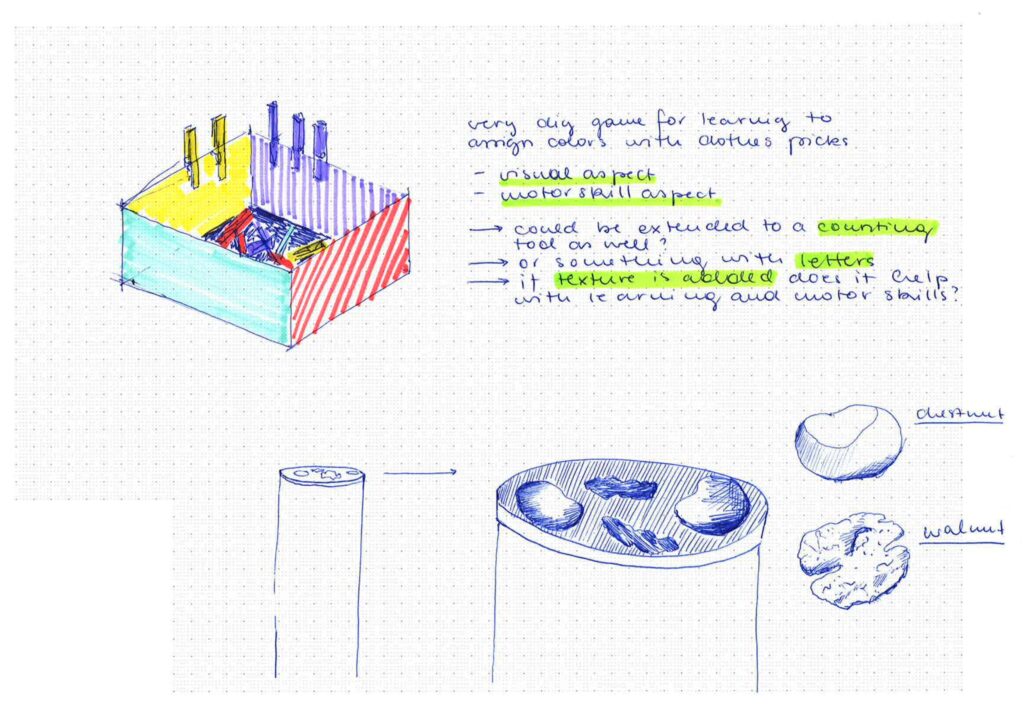 very diy game for learning to
assign colors with clothes picks
- visual aspect
- motorskill aspect
→ could be extended to a counting
tool as well?
→ or something with letters
→ if texture is added does it help
with learning and motor skills?
chestnut
walnut